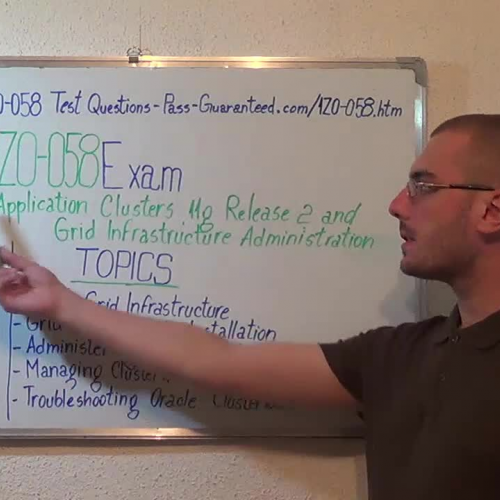 0-058 Test Questions-Pass-Guaranteed.com/1Z0-058.htm
Z0-058 Exam
Application Clusters 11g Release 2 and
Grid Infrastructure Administration
TOPICS
Grid Infrastructure
- Grid
- Administe
- Managing Cluster
- Troubleshooting Oracle